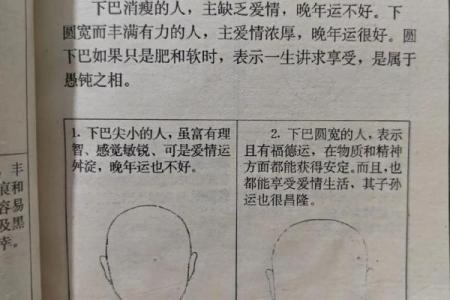 下巴消瘦的人，主缺乏爱情，晚年运不好。下
圆宽而丰满有力的人，主爱情浓厚，晚年运很好。圆
下巴如果只是肥和软时，表示一生讲求享受，是属于
愚钝之相。
1. 下巴尖小的人，虽富有理
智、感觉敏锐、可是爱情运
舛淀，晚年运也不好。
2. 下巴圆宽的人，表示
且有福德运，在物质和精神
方面都能获得安定。而且，也
都能享受爱情生活，其子孙
运也很昌隆。
，丰
痕和
容易
及黑
幸。